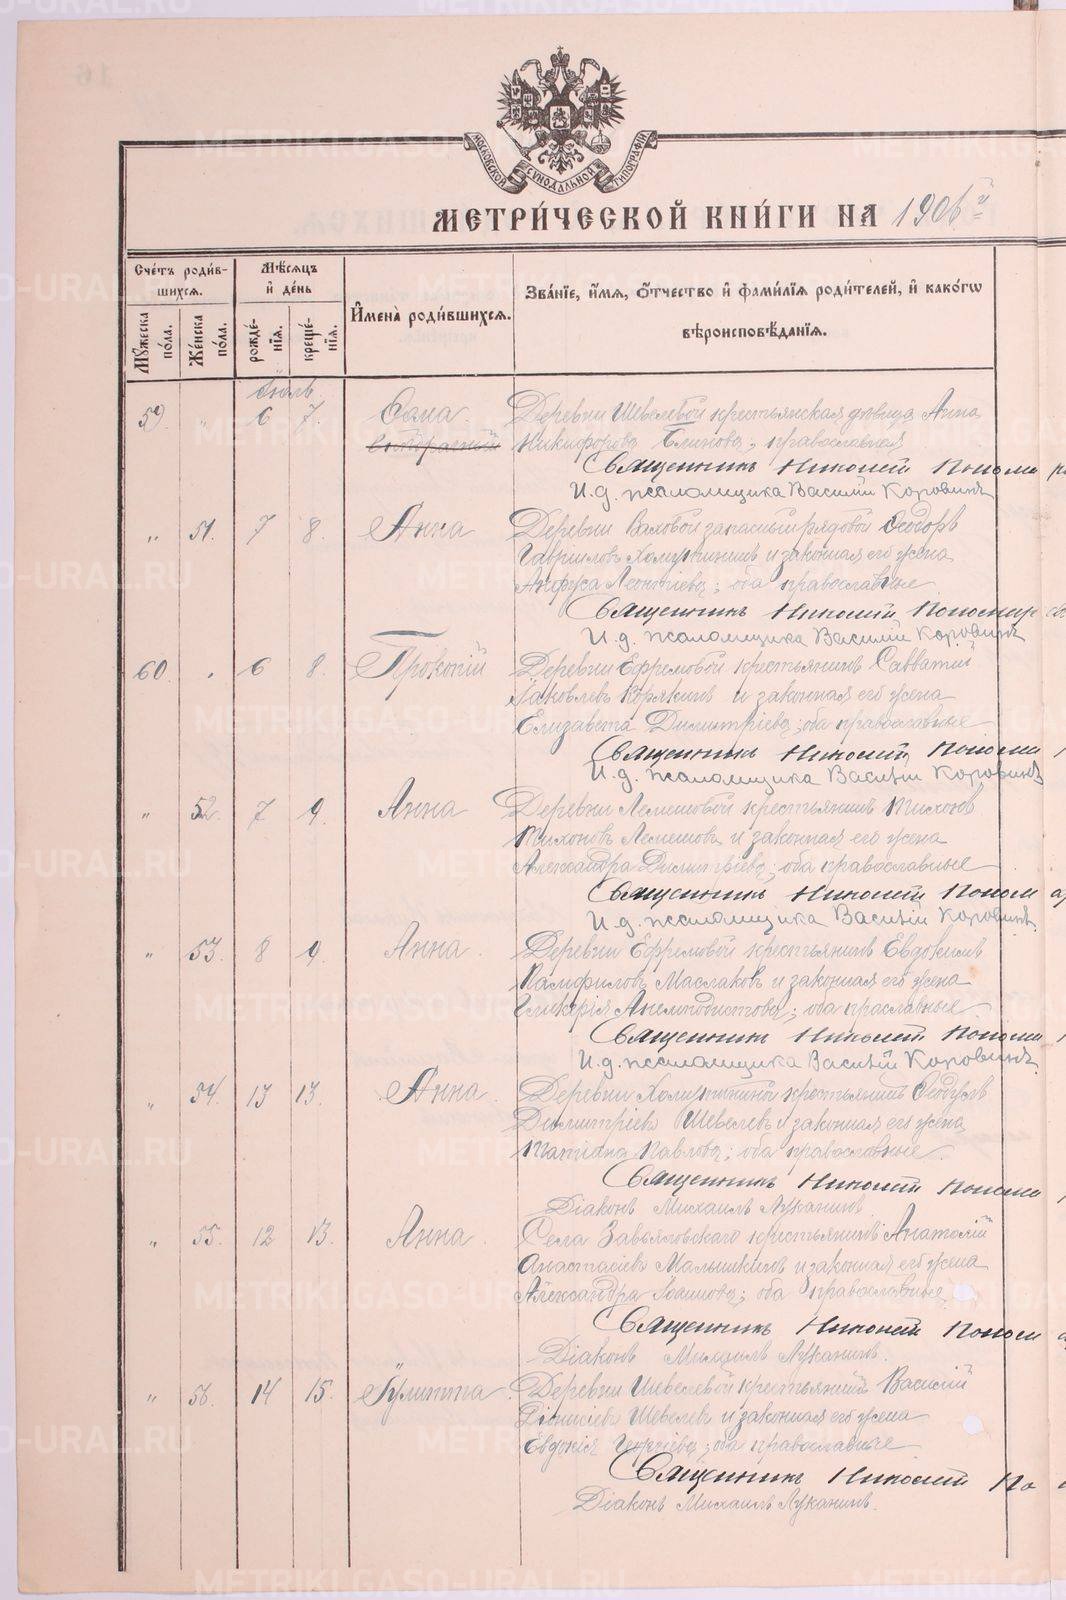 МОСКОВСКОЙ СѴНОДАЛЬНОЙ ТИПОГРАФІИ
МЕТРИ́ЧЕСКОЙ КНИ́ГИ НА 1906й
Сче́тъ роди́в-
шихся.
Мѣ́сяцъ
и҆ де́нь
И҆мена̀ роди́вшихся.
Зва́нїе, и҆́мя, ѻ҆́тчество и҆ фами́лїя роди́телей, и҆ како́гѡ
вѣроисповѣ́данїя.
Мꙋ́жеска по́ла.
Же́нска по́ла.
рожде́-
нїя.
креще́-
нїя.
Іюль
59 " 6 7. Сама Деревни Шевелевой крестьянская дѣвица Анна
Никифорова Блинова, православная
Священникъ Николай Пономар
И.д. псаломщика Василій Коровинъ
" 51. 7 8. Анна Деревни запасный рядовой Ѳеодоръ
Гавриловъ Холкинъ и законная его жена
Анфуса Леонтіева; оба православные
Священникъ Николай Пономар
И.д. псаломщика Василій Коровинъ
60. " 6 8. Прокопій Деревни Ефремовой крестьянинъ Савватій
Іаковлевъ Корякинъ и законная его жена
Елизавета Димитріева; оба православные
Священникъ Николай Пономар
И.д. псаломщика Василій Коровинъ
" 52. 7 9. Анна Деревни Лемешовой крестьянинъ Тихонъ
Тихоновъ Лемешовъ и законная его жена
Александра Димитріева; оба православные
Священникъ Николай Пономар
И.д. псаломщика Василій Коровинъ.
" 53. 8 9. Анна. Деревни Ефремовой крестьянинъ Евдокимъ
Памфиловъ Маслаковъ и законная его жена
Гликерія Анемподистова; оба праславные.
Священникъ Николай Пономар
И.д. псаломщика Василій Коровинъ.
" 54. 13 13. Анна. Деревни крестьянинъ Ѳеодулъ
Димитріевъ Шевелевъ и законная его жена
Татіана Павлова; оба православные.
Священникъ Николай Пономар
Діаконъ Михаилъ Луканинъ
" 55. 12 13. Анна. Села Завьяловскаго крестьянинъ Анатолій
Анастасіевъ Малышкинъ и законная его жена
Александра Іоаннова; оба православные.
Священникъ Николай Пономар
Діаконъ Михаилъ Луканинъ.
" 56. 14 15. Іулитта. Деревни Шевелевой крестьянинъ Василій
Діонисіевъ Шевелевъ и законная его жена
Евдокія Георгіева; оба православные
Священникъ Николай По
Діаконъ Михаилъ Луканинъ.
METRIKI.GASO-URAL.RU